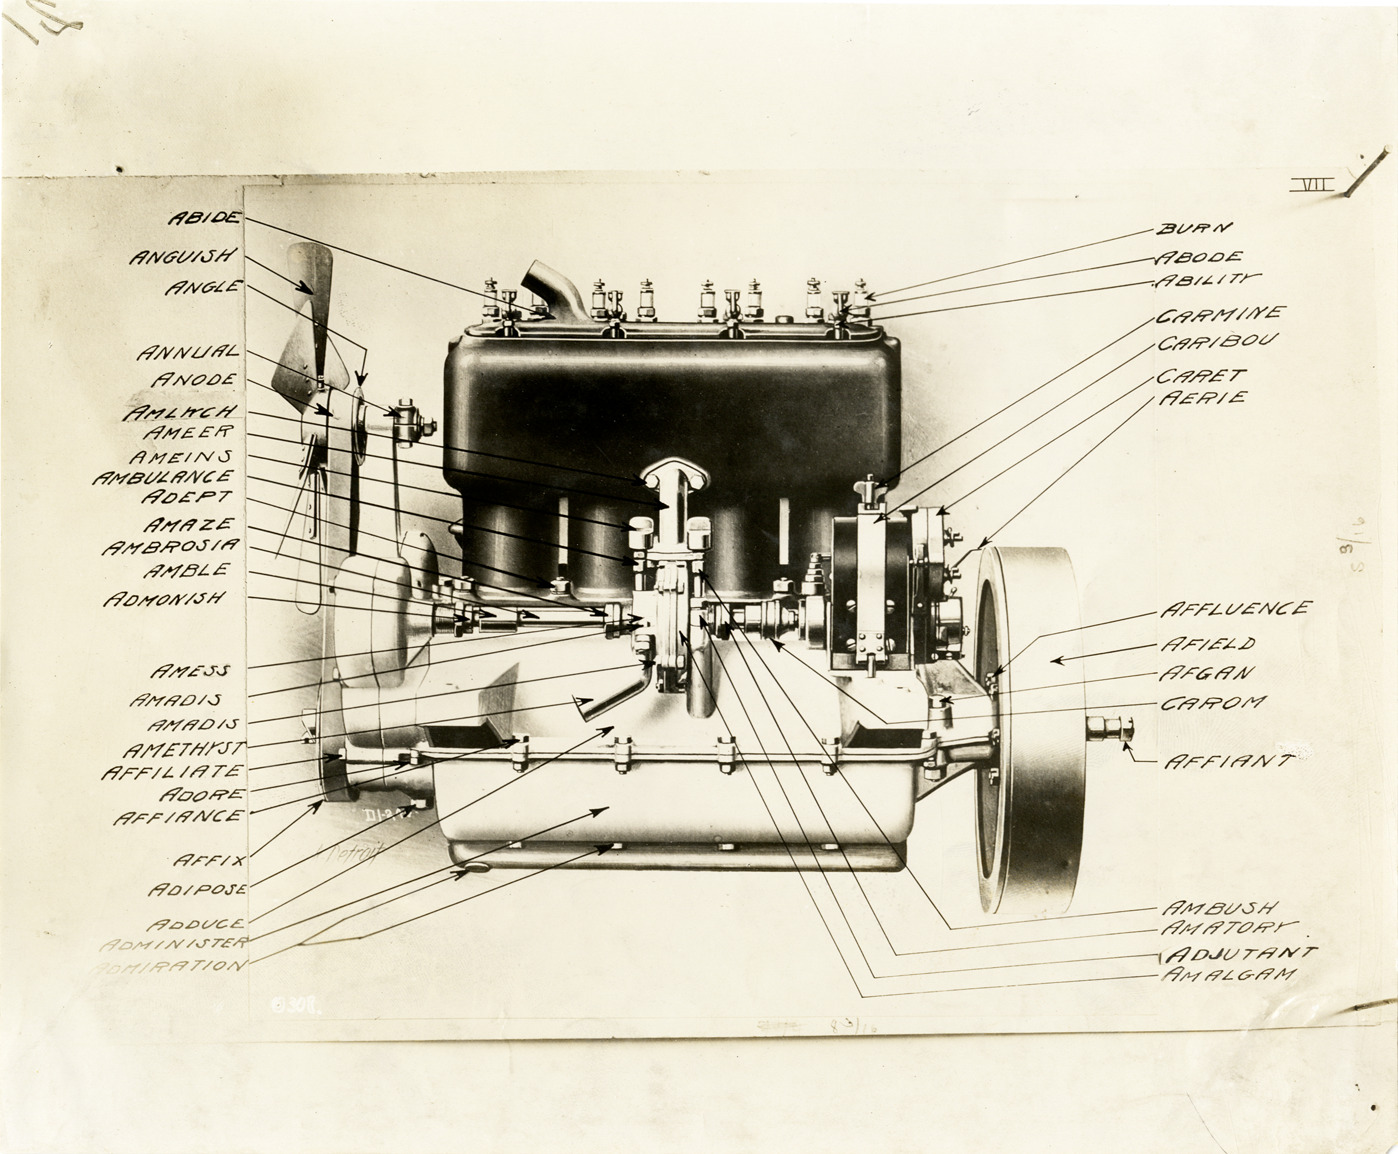 VII
ABIDE
ANGUISH
ANGLE
ANNUAL
ANODE
AMLWCH
AMEER
AMEINS
AMBULANCE
ADEPT
AMAZE
AMBROSIA
AMBLE
ADMONISH
AMESS
AMADIS
AMADIS
AMETHYST
AFFILIATE
ADORE
AFFIANCE
AFFIX
ADIPOSE
ADDUCE
ADMINISTER
ADMIRATION
BURN
ABODE
ABILITY
CARMINE
CARIBOU
CARET
AERIE
AFFLUENCE
AFIELD
AFGAN
CAROM
AFFIANT
AMBUSH
AMATORY
ADJUTANT
AMALGAM
Detroit